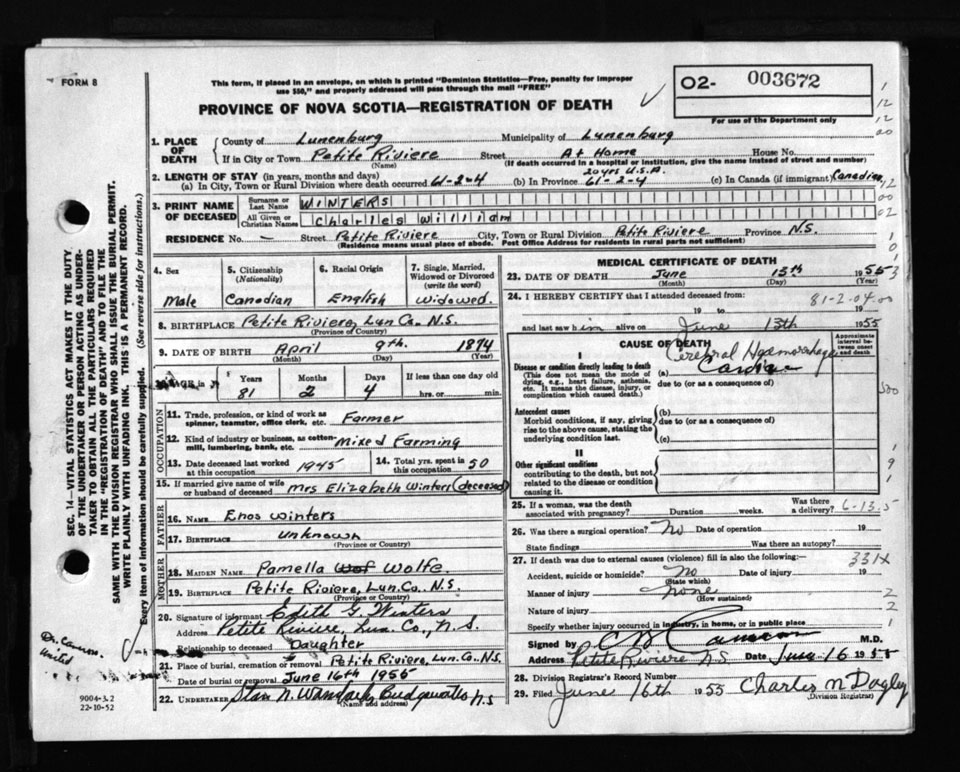 FORM 8
This form, if placed in an envelope, on which is printed "Dominion Statistics—Free, penalty for improper
use $50," and properly addressed will pass through the mail "FREE"
02- 003672
For use of the Department only
PROVINCE OF NOVA SCOTIA—REGISTRATION OF DEATH
1. PLACE OF DEATH
County of Lunenburg Municipality of Lunenburg
If in City or Town Petite Riviere Street At Home House No.
(Name) (If death occurred in a hospital or institution, give the name instead of street and number)
2. LENGTH OF STAY (in years, months and days) 20 yrs U.S.A.
(a) In City, Town or Rural Division where death occurred 61-2-4 (b) In Province 61-2-4 (c) In Canada (if immigrant) Canadian
3. PRINT NAME OF DECEASED
Surname or Last Name WINTERS
All Given or Christian Names Charles William
RESIDENCE No. - Street Petite Riviere City, Town or Rural Division Petite Riviere Province N.S.
(Residence means usual place of abode. Post Office Address for residents in rural parts not sufficient)
4. Sex Male
5. Citizenship (Nationality) Canadian
6. Racial Origin English
7. Single, Married, Widowed or Divorced (write the word) Widowed.
8. BIRTHPLACE Petite Riviere, Lun Co. N.S.
(Province or Country)
9. DATE OF BIRTH April 9th. 1874
(Month) (Day) (Year)
AGE in Years Months Days If less than one day old
81 2 4 hrs. or min.
OCCUPATION
11. Trade, profession, or kind of work as spinner, teamster, office clerk, etc. Farmer
12. Kind of industry or business, as cotton-mill, lumbering, bank, etc. Mixed Farming
13. Date deceased last worked at this occupation 1945 14. Total yrs. spent in this occupation 50
15. If married give name of wife or husband of deceased Mrs Elizabeth Winters (deceased)
FATHER
16. NAME Enos Winters
17. BIRTHPLACE Unknown
(Province or Country)
MOTHER
18. MAIDEN NAME Pamella Wolfe
19. BIRTHPLACE Petite Riviere, Lun. Co., N.S.
(Province or Country)
20. Signature of informant Edith G. Winters
Address Petite Riviere, Lun. Co., N.S.
Relationship to deceased Daughter
21. Place of burial, cremation or removal Petite Riviere, Lun. Co. N.S.
Date of burial or removal June 16th 1955
22. UNDERTAKER Bridgewater N.S
(Name and address)
MEDICAL CERTIFICATE OF DEATH
23. DATE OF DEATH June 13th 1955
(Month) (Day)
24. I HEREBY CERTIFY that I attended deceased from: 81-2-04.00
19 to 19
and last saw him alive on June 13th 1955
CAUSE OF DEATH
Approximate interval between onset and death
I
Disease or condition directly leading to death
(This does not mean the mode of dying, e.g., heart failure, asthenia, etc. It means the disease, injury, or complication which caused death.)
(a) Cerebral Hæmorrhage
Cardiac
due to (or as a consequence of)
Antecedent causes
Morbid conditions, if any, giving rise to the above cause, stating the underlying condition last.
(b)
due to (or as a consequence of)
(c)
II
Other significant conditions
contributing to the death, but not related to the disease or condition causing it.
25. If a woman, was the death associated with pregnancy? Duration weeks. Was there a delivery? 6-13.5
26. Was there a surgical operation? No Date of operation 19
State findings Was there an autopsy?
27. If death was due to external causes (violence) fill in also the following:— 331X
Accident, suicide or homicide? No Date of injury 19
(State which)
Manner of injury none
(How sustained)
Nature of injury
Specify whether injury occurred in industry, in home, or in public place
Signed by C B Cameron M.D.
Address Petite Riviere N.S. Date June 16 1955
28. Division Registrar's Record Number
29. Filed June 16th 1955 Charles M Dagley
(Division Registrar)
SEC. 14—VITAL STATISTICS ACT MAKES IT THE DUTY
OF THE UNDERTAKER OR PERSON ACTING AS UNDERTAKER TO OBTAIN ALL THE PARTICULARS REQUIRED
IN THE "REGISTRATION OF DEATH" AND TO FILE THE
SAME WITH THE DIVISION REGISTRAR WHO SHALL ISSUE THE BURIAL PERMIT.
WRITE PLAINLY WITH UNFADING INK. THIS IS A PERMANENT RECORD.
Every item of information should be carefully supplied. (See reverse side for instructions.)
9004-3.2
22-10-52